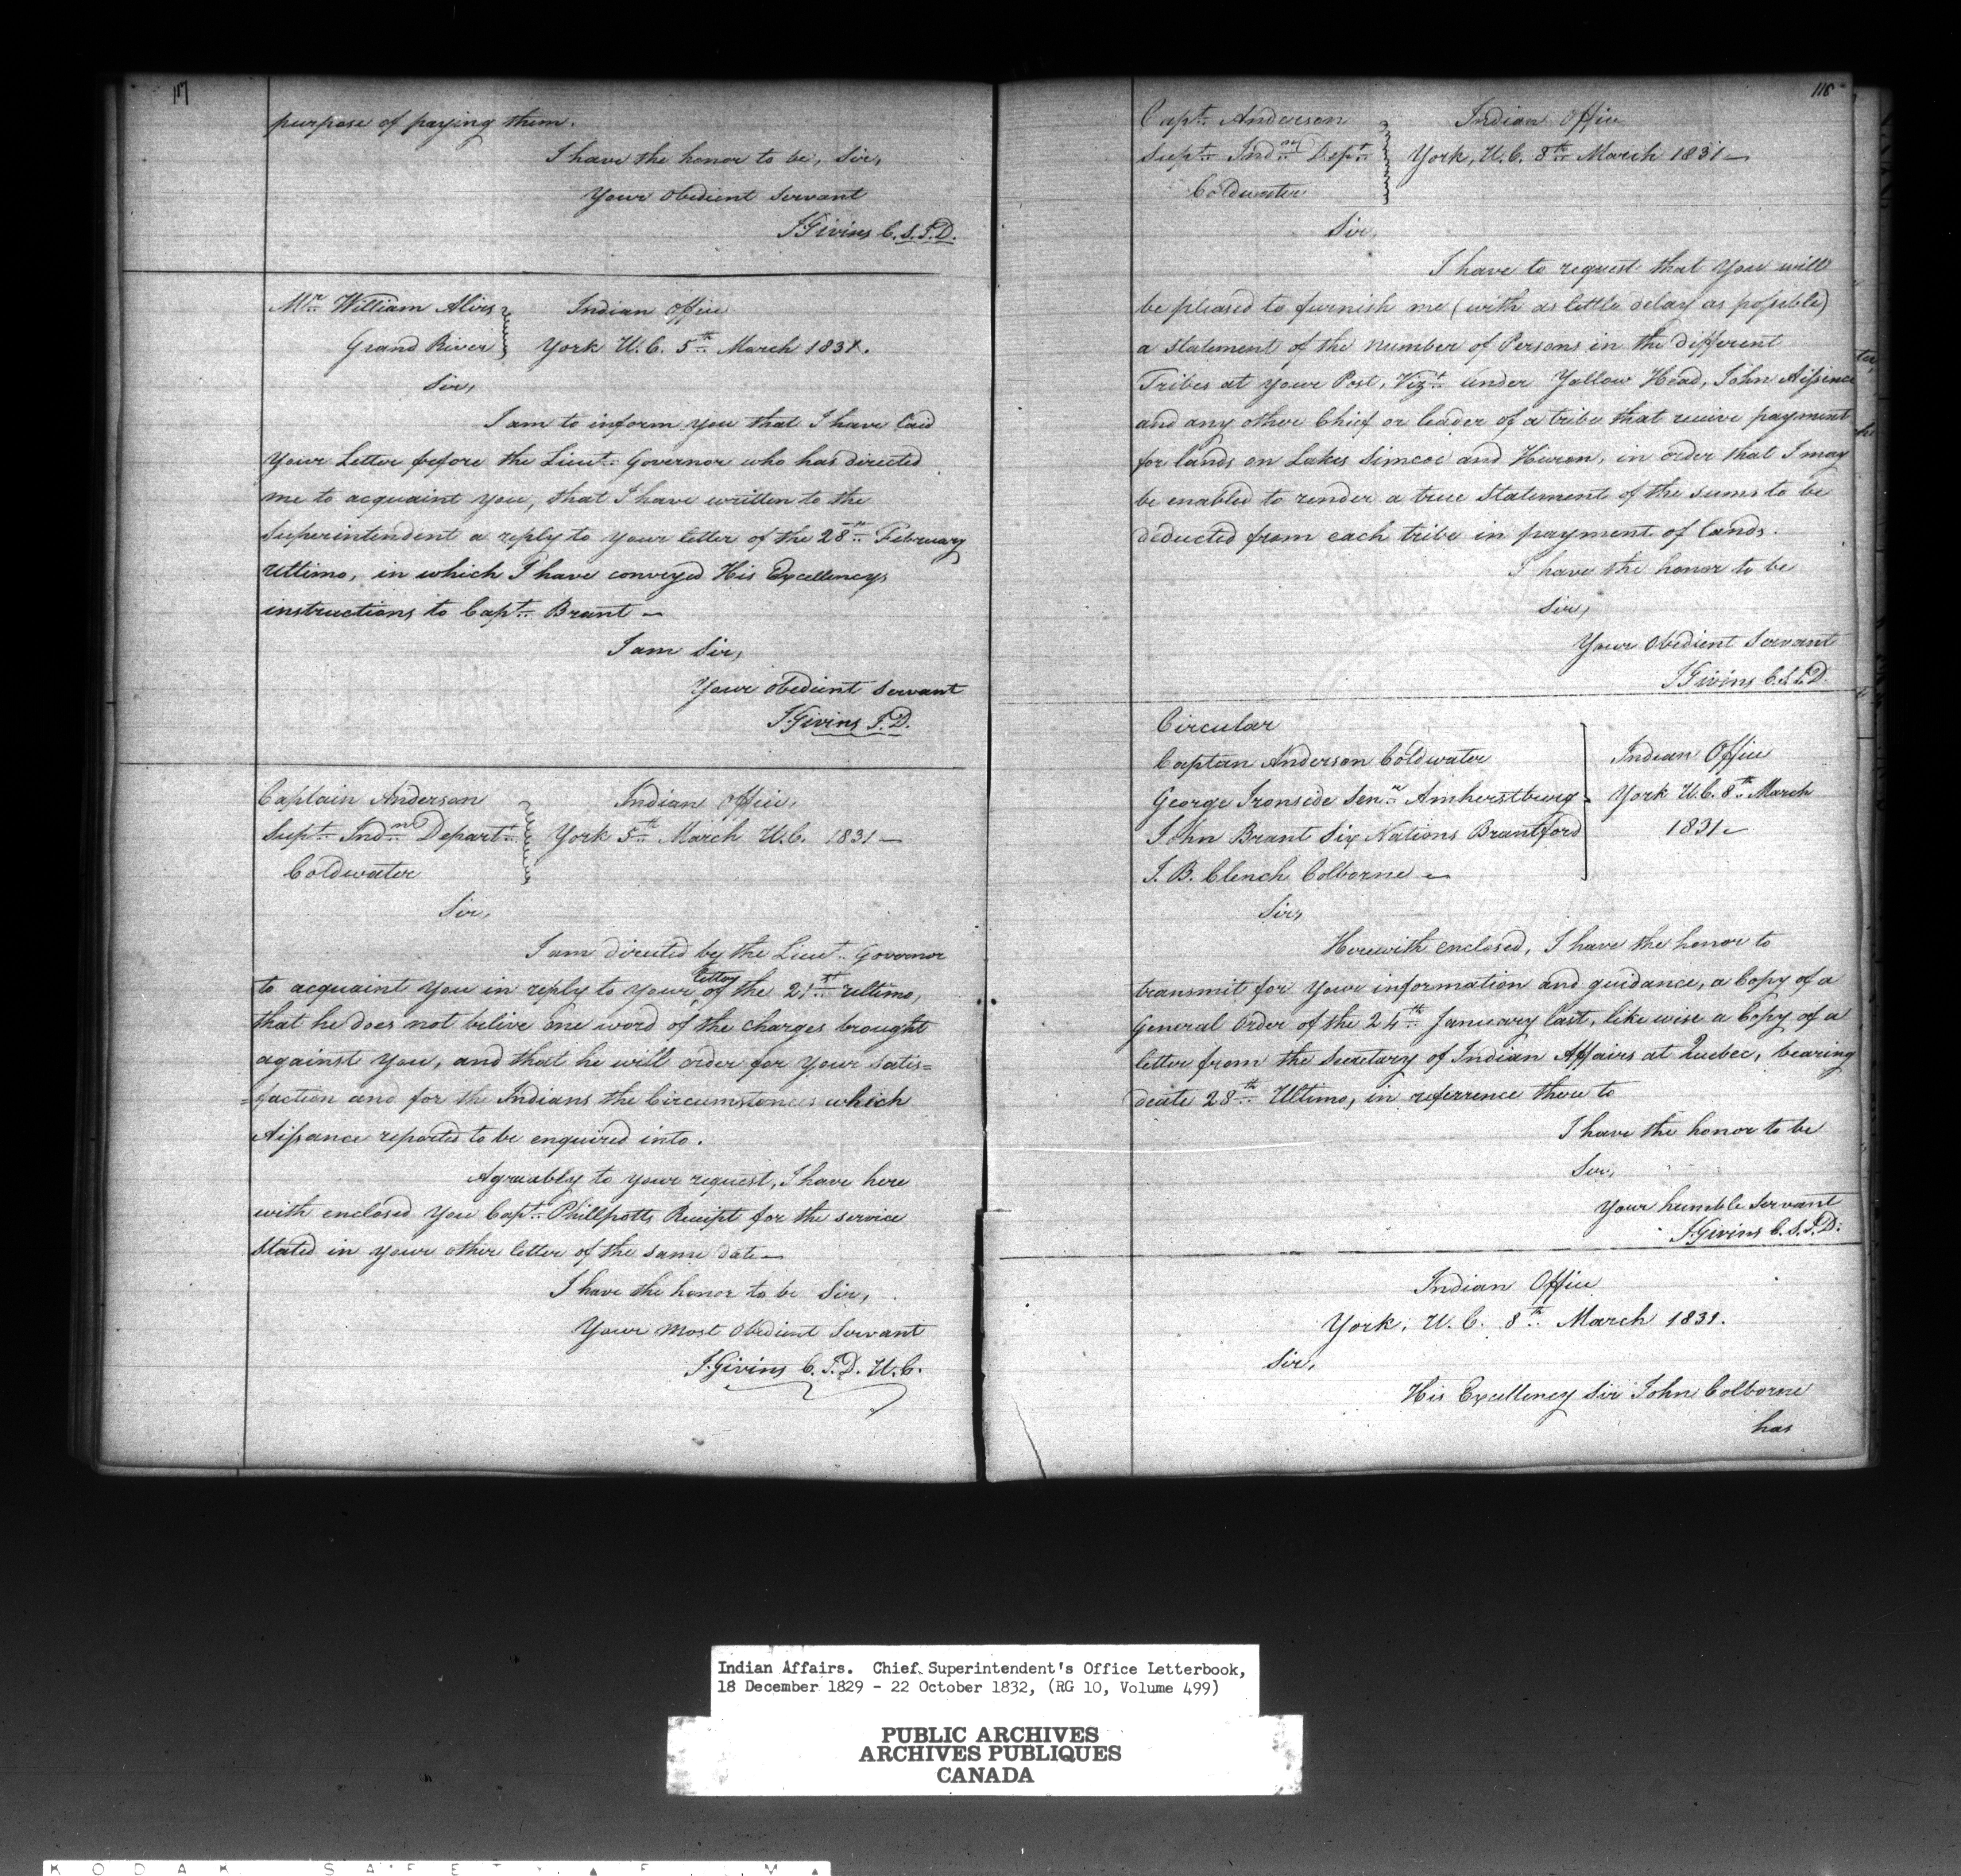 117
purpose of paying them.
I have the honor to be, Sir,
Your Obedient Servant
J Givins C. S. I. D.
Mr. William
Grand River
Indian Office
York U. C. 5th March 1831.
Sir,
I am to inform you that I have laid
Your Letter before the Lieut. Governor who has directed
me to acquaint you, that I have written to the
Superintendent a reply to your letter of the 28th February
Ultimo, in which I have conveyed His Excellencys
instructions to Capt. Brant —
I am Sir,
Your obedient Servant
J. Givins I. D.
Captain Anderson
Supt. Indn Depart.
Coldwater
Indian Office,
York 5th March U. C. 1831 —
Sir,
I am directed by the Lieut. Govornor
to acquaint You in reply to your letter of the 21st ultimo,
that he does not belive one word of the charges brought
against You, and that he will order for Your satis=
=faction and for the Indians the Circumstances which
Aissance reported to be enquired into.
Agreeably to your request, I have here
with enclosed You Capt. Phillpotts Receipt for the service
Stated in your other letter of the same date —
I have the honor to be Sir,
Your Most Obedient Servant
J. Givins C. I. D. U. C.
118
Capt. Anderson
Supt. Indn Dept.
Coldwater
Indian Office
York, U. C. 8th March 1831 —
Sir,
I have to request that You will
be pleased to furnish me (with as little delay as possible)
a Statement of the number of Persons in the different
Tribes at Your Post, Vizt. under Yallow Head, John Aissince
and any other Chief or leader of a tribe that recive payment
for lands on Lakes Simcoe and Huron, in order that I may
be enabled to render a true Statement of the sums to be
deducted from each tribe in payment of lands.
I have the honor to be
Sir,
Your Obedient Servant
J Givins C. S. I. D.
Circular
Captan Anderson Coldwater
George Ironside Senr. Amherstburg
John Brant Six Nations Brantford
J. B. Clench Colborne —
Indian Office
York U. C. 8th March
1831 —
Sir,
Herewith enclosed, I have the honor to
transmit for Your information and guidance, a Copy of a
General Order of the 24th January last, like wise a Copy of a
letter from the Secretary of Indian Affairs at Quebec, bearing
date 28th Ultimo, in referrence there to
I have the honor to be
Sir,
Your humble Servant
J. Givins C. S. I. D.
Indian Office
York, U. C. 8th March 1831.
Sir,
His Excellency Sir John Colborne
has
Indian Affairs. Chief Superintendent's Office Letterbook,
18 December 1829 - 22 October 1832, (RG 10, Volume 499)
PUBLIC ARCHIVES
ARCHIVES PUBLIQUES
CANADA
KODAK SAFETY